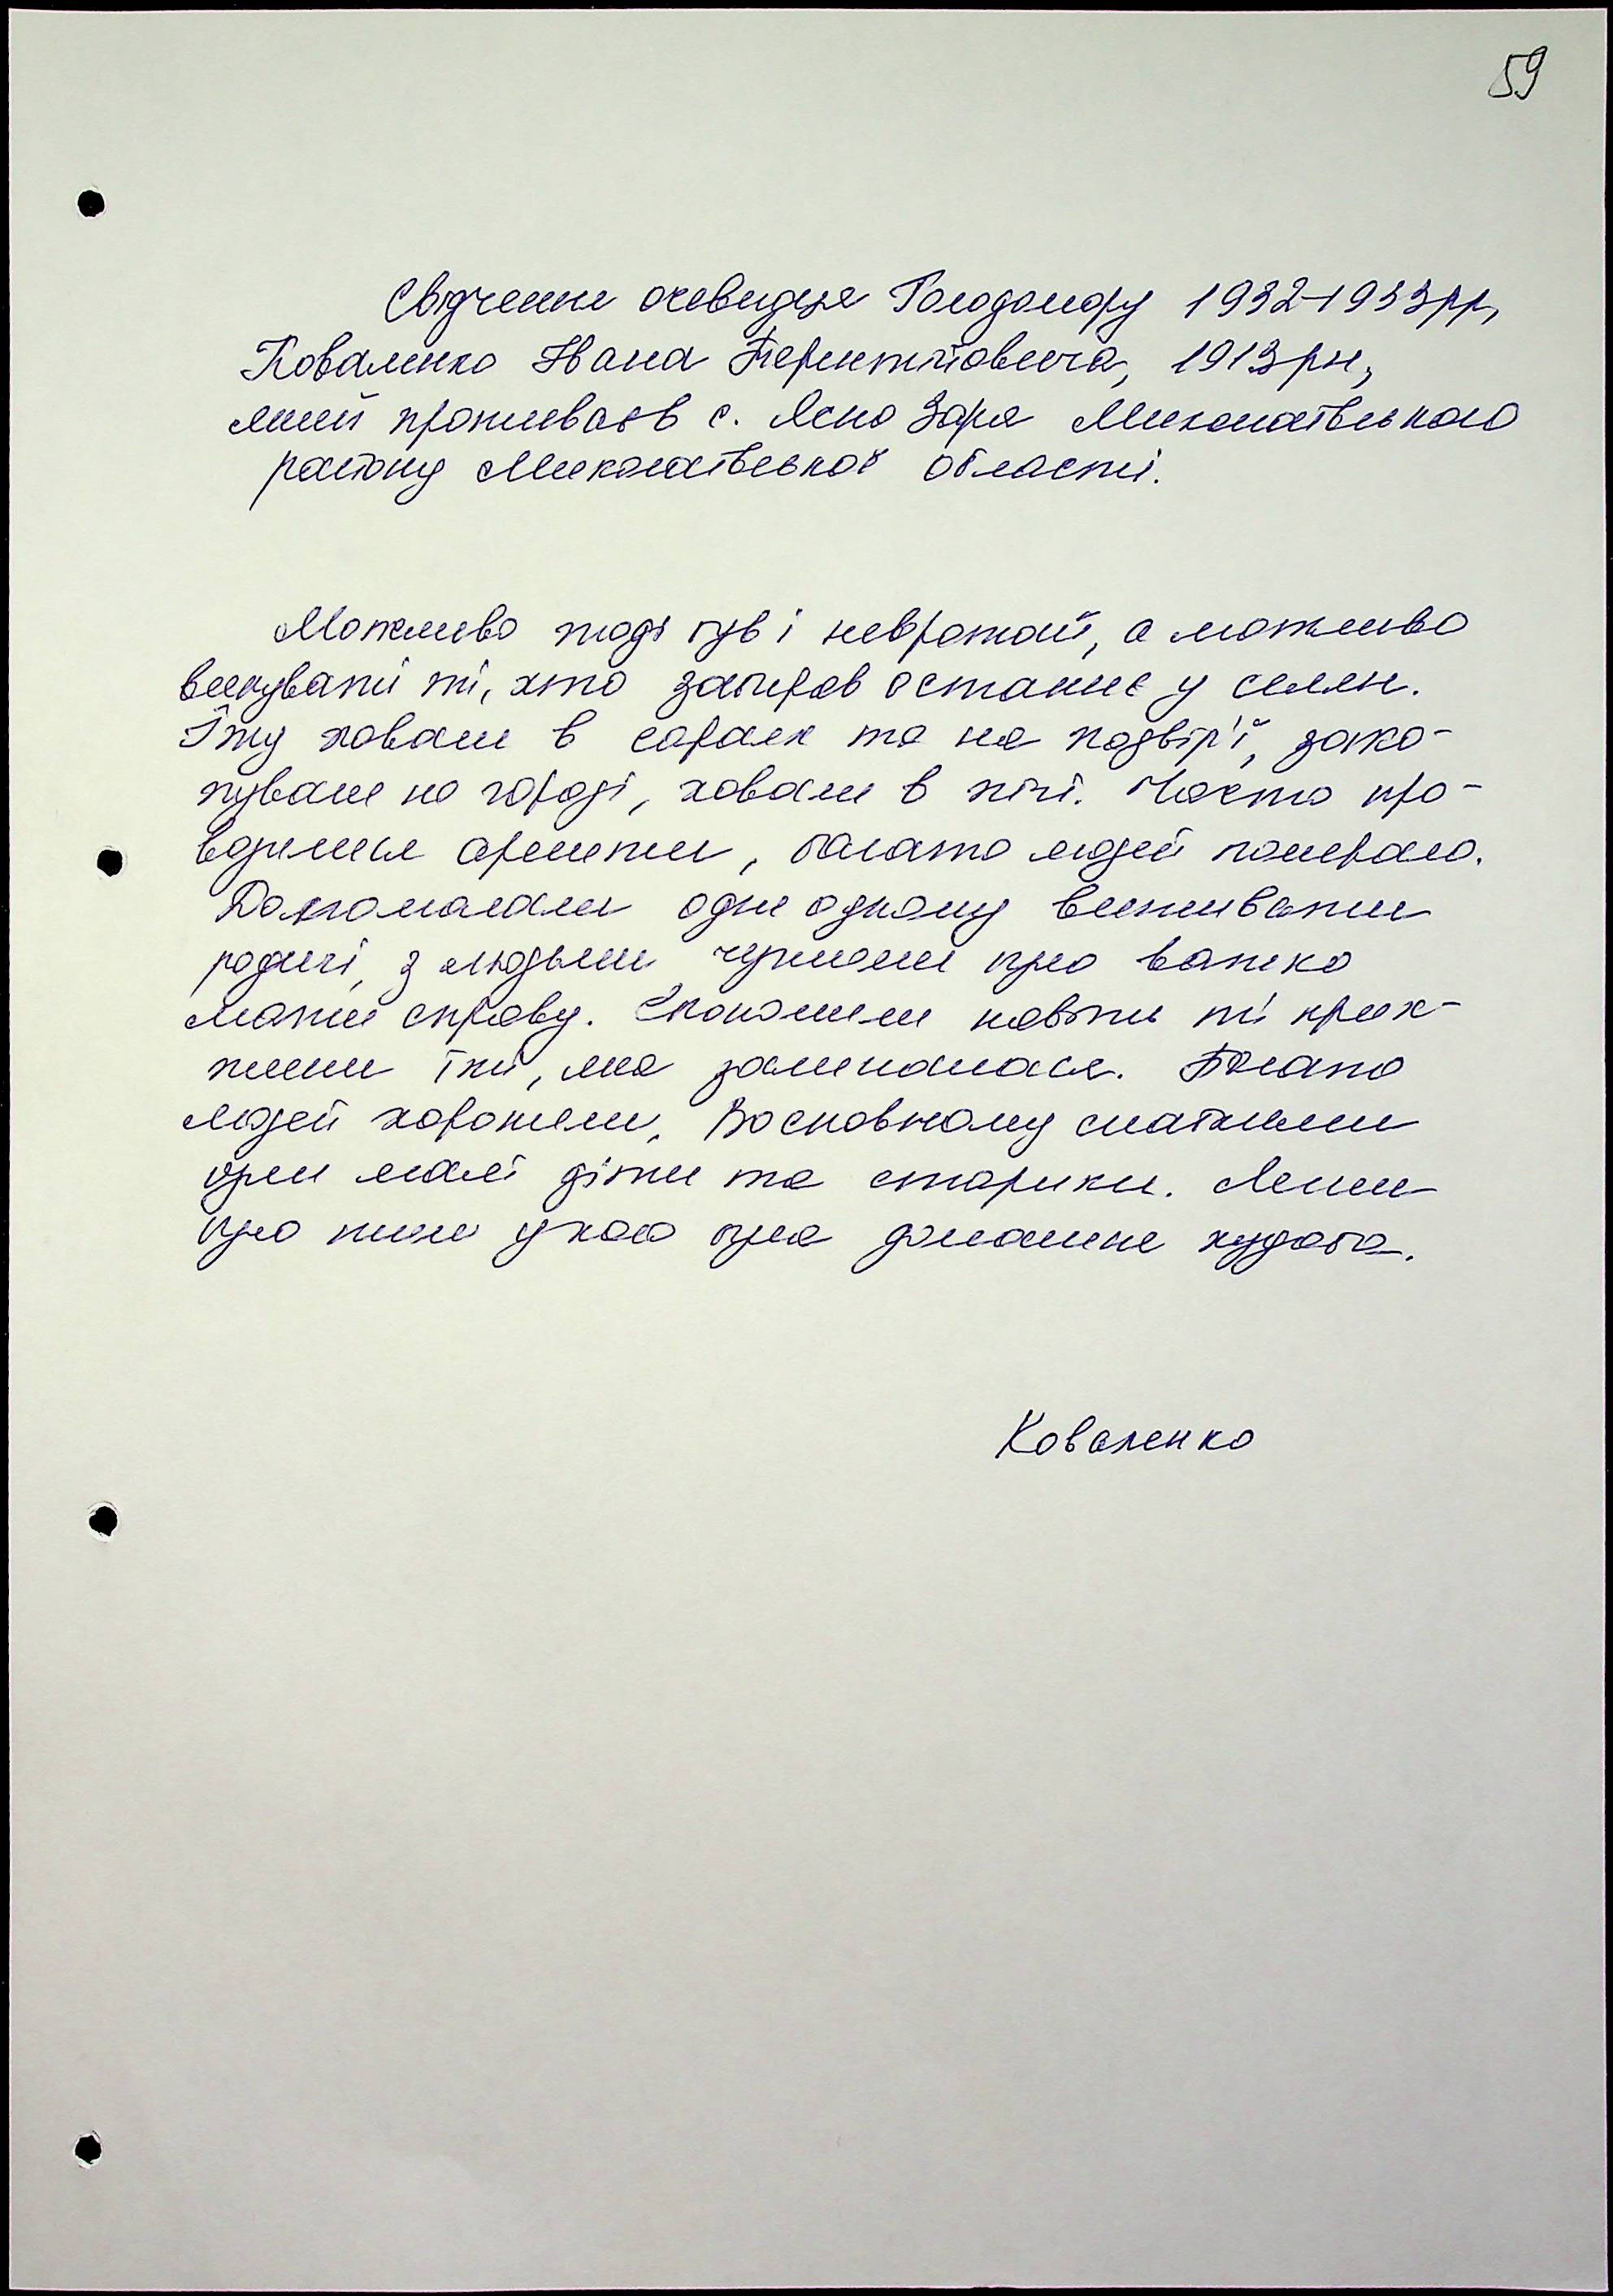 59
Свідчення очевидця Голодомору 1932-1933рр,
Коваленко Івана Терентійовича, 1913рн,
який проживає в с. Ясна Заря Миколаївського
району Миколаївської області.
Можливо тоді був і неврожай, а можливо
винуваті ті, хто забирав останнє у селян.
Їжу ховали в сараях та на подвір'ї, зако-
пували на городі, ховали в печі. Часто про-
водилися арешти, багато людей помирало.
Допомагали одне одному виживати
родичі, з людьми чужими було важко
мати справу. Економили навіть ті крих-
тини їжі, яка залишалася. Багато
людей хороніли. Восновному слабкими
були малі діти та старики. Легше
було тим у кого була домашня худоба.
Коваленко